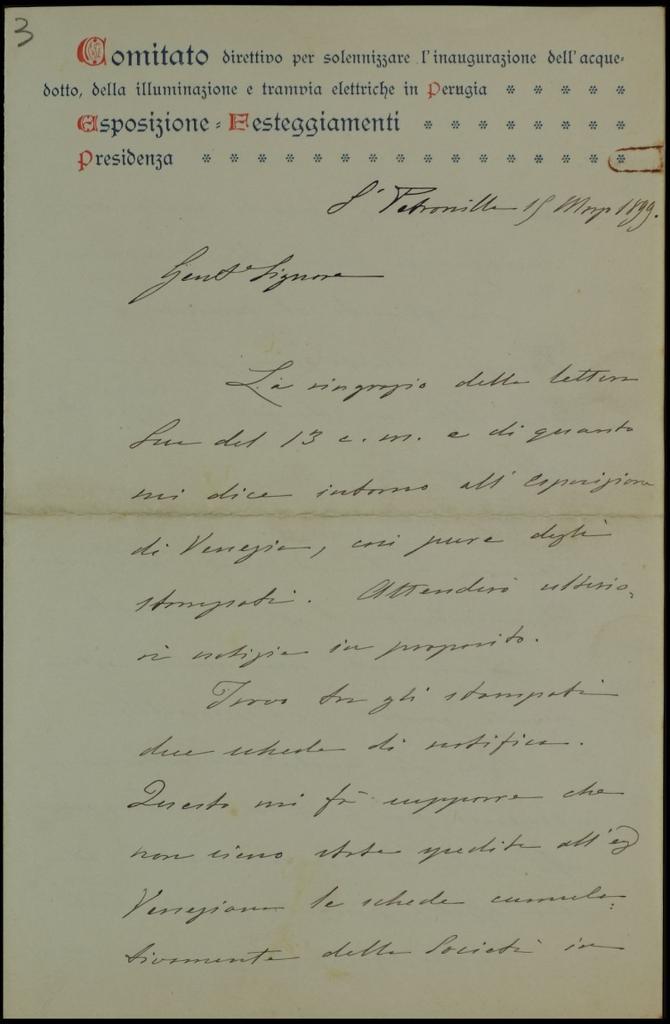 3
Comitato direttivo per solennizzare l'inaugurazione dell'acque=
dotto, della illuminazione e tramvia elettriche in Perugia * * * * *
Esposizione = Festeggiamenti * * * * * * * *
Presidenza * * * * * * * * * * * * * * * *
S. Petronilla 15 1899.
Gent.e Signore
La ringrazio della lettera
Sua del 13 c. m. e di quanto
mi dice intorno all'Esposizione
di Venezia, così pure degli
stampati. Attenderò ulterio=
ri notizie in proposito.
Trovo tra gli stampati
due schede di notifica.
Questo mi fà supporre che
non sieno state spedite all'
Veneziana le schede cumula=
tivamente della Società in